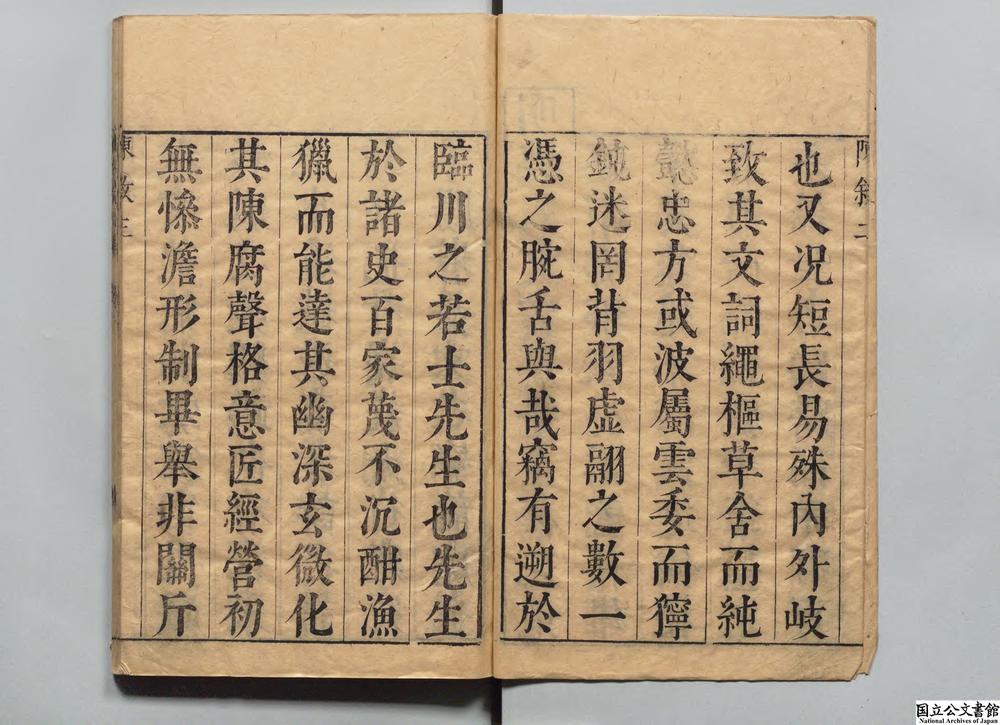 陳敘 二
也又况短長易殊內外岐
致其文詞繩樞草舍而純
懿忠方或波屬雲委而獰
鈍迷罔背羽虛翮之數一
憑之腕舌與哉竊有遡於
臨川之若士先生也先生
於諸史百家蔑不沉酣漁
獵而能達其幽深玄微化
其陳腐聲格意匠經營初
無慘澹形制畢舉非關斤
陳敘 三
国立公文書館
National Archives of Japan